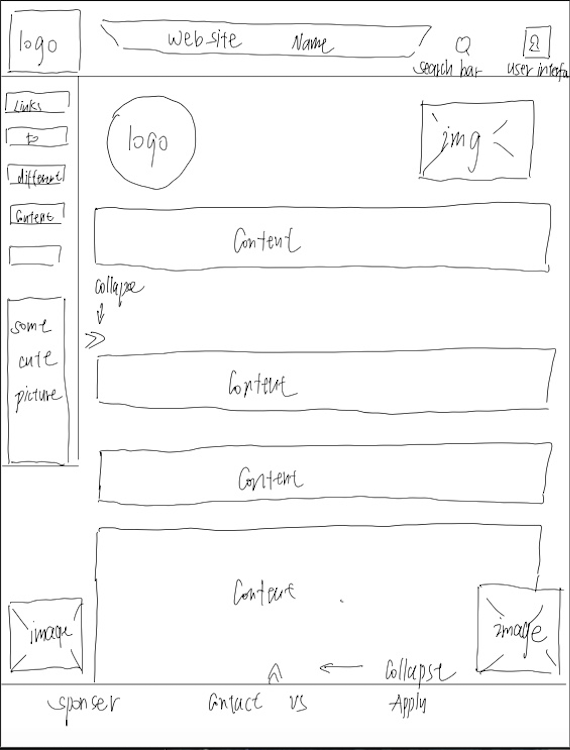 logo
Website Name
search bar
user interfa
Links
to
different
Content
logo
img
Content
collapse
some
cute
picture
Content
Content
Content
image
image
Collapse
sponser
Contact us
Apply